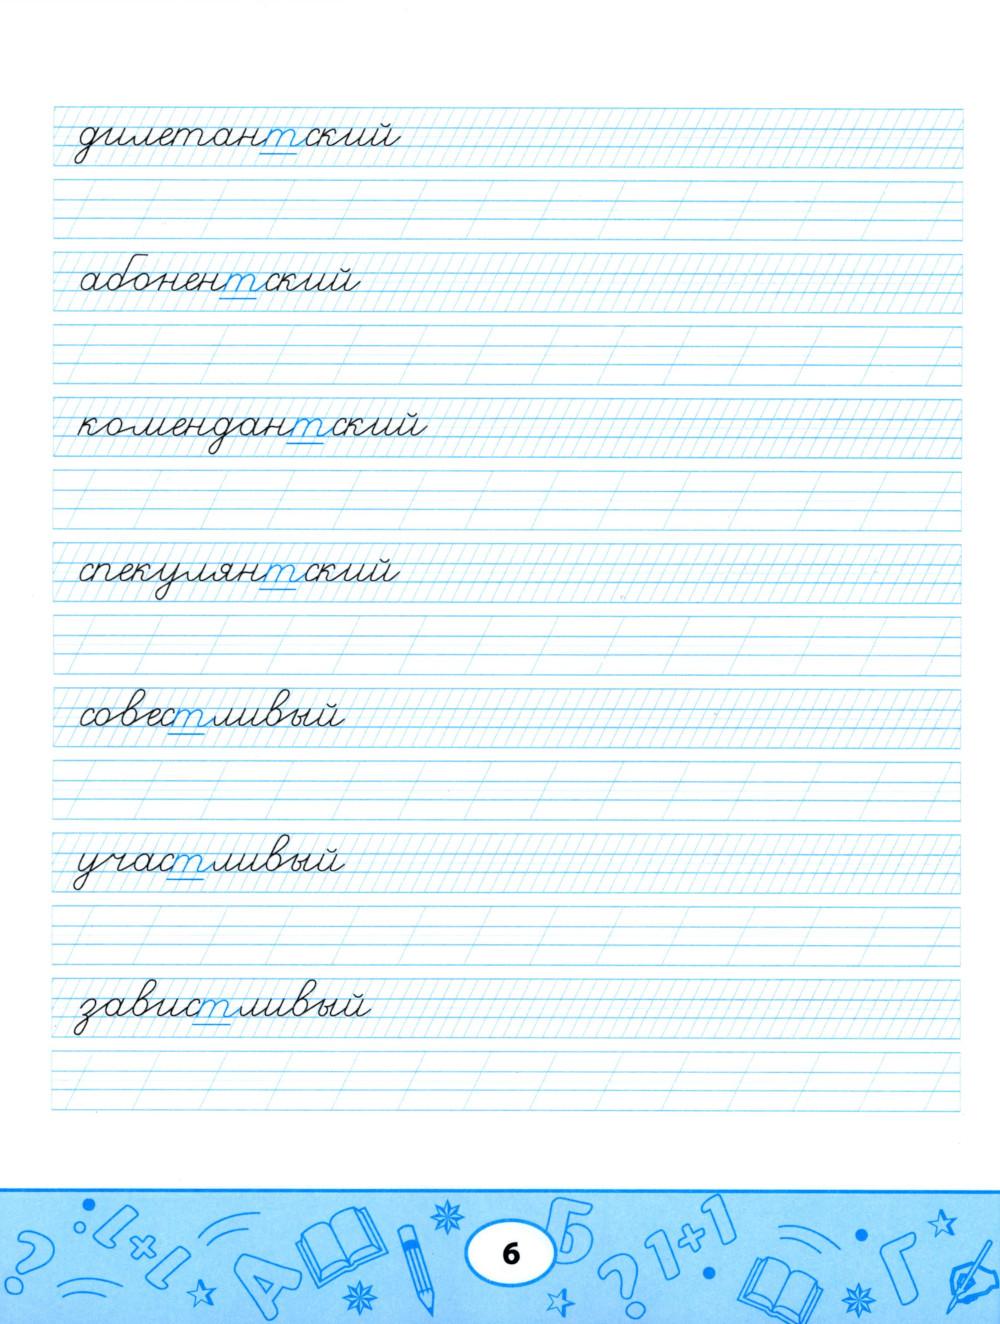 дилетантский
абонентский
комендантский
спекулянтский
совестливый
участливый
завистливый
1+1
А
6
Б
1+1
Г